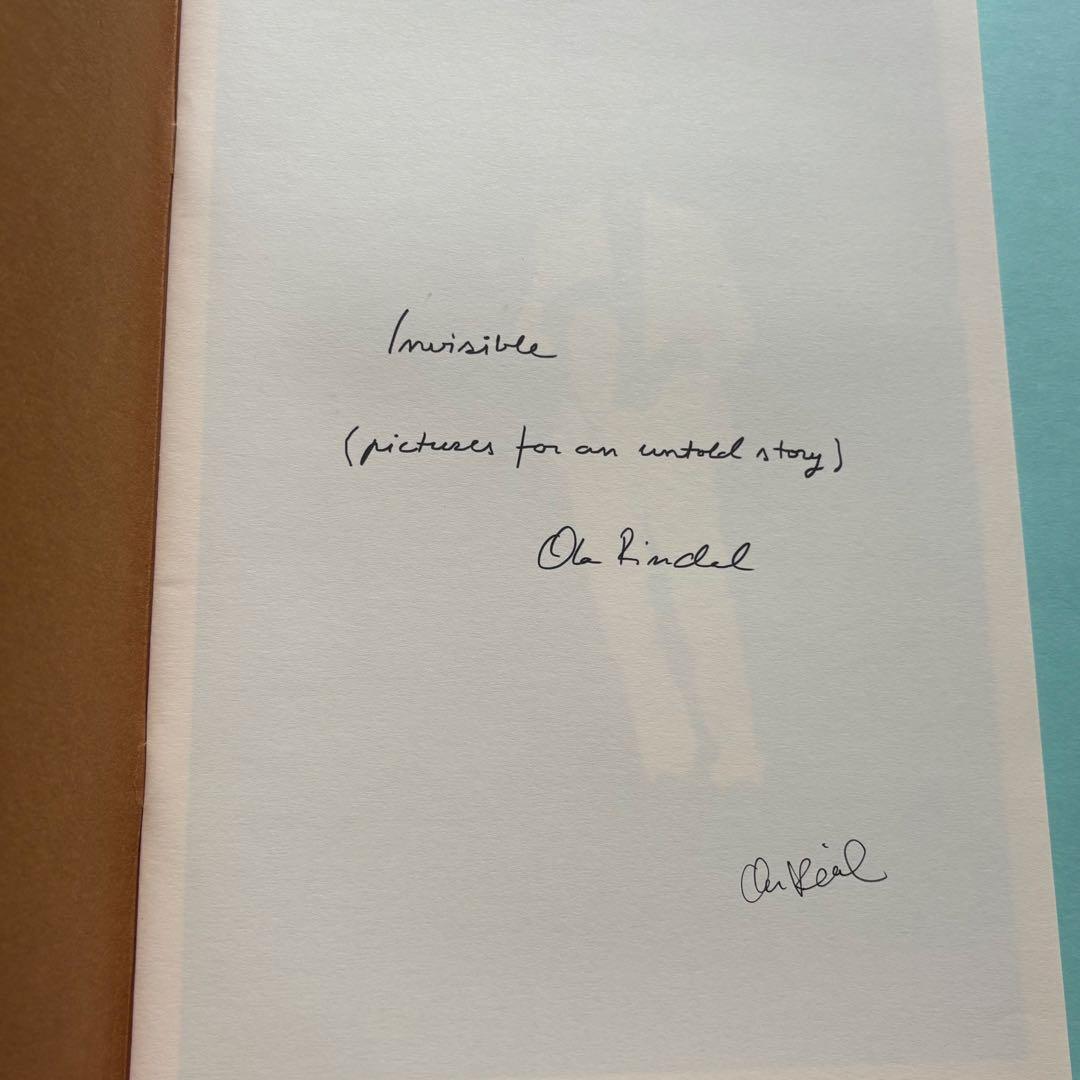 Invisible
(pictures for an untold story)
Ola Rindal